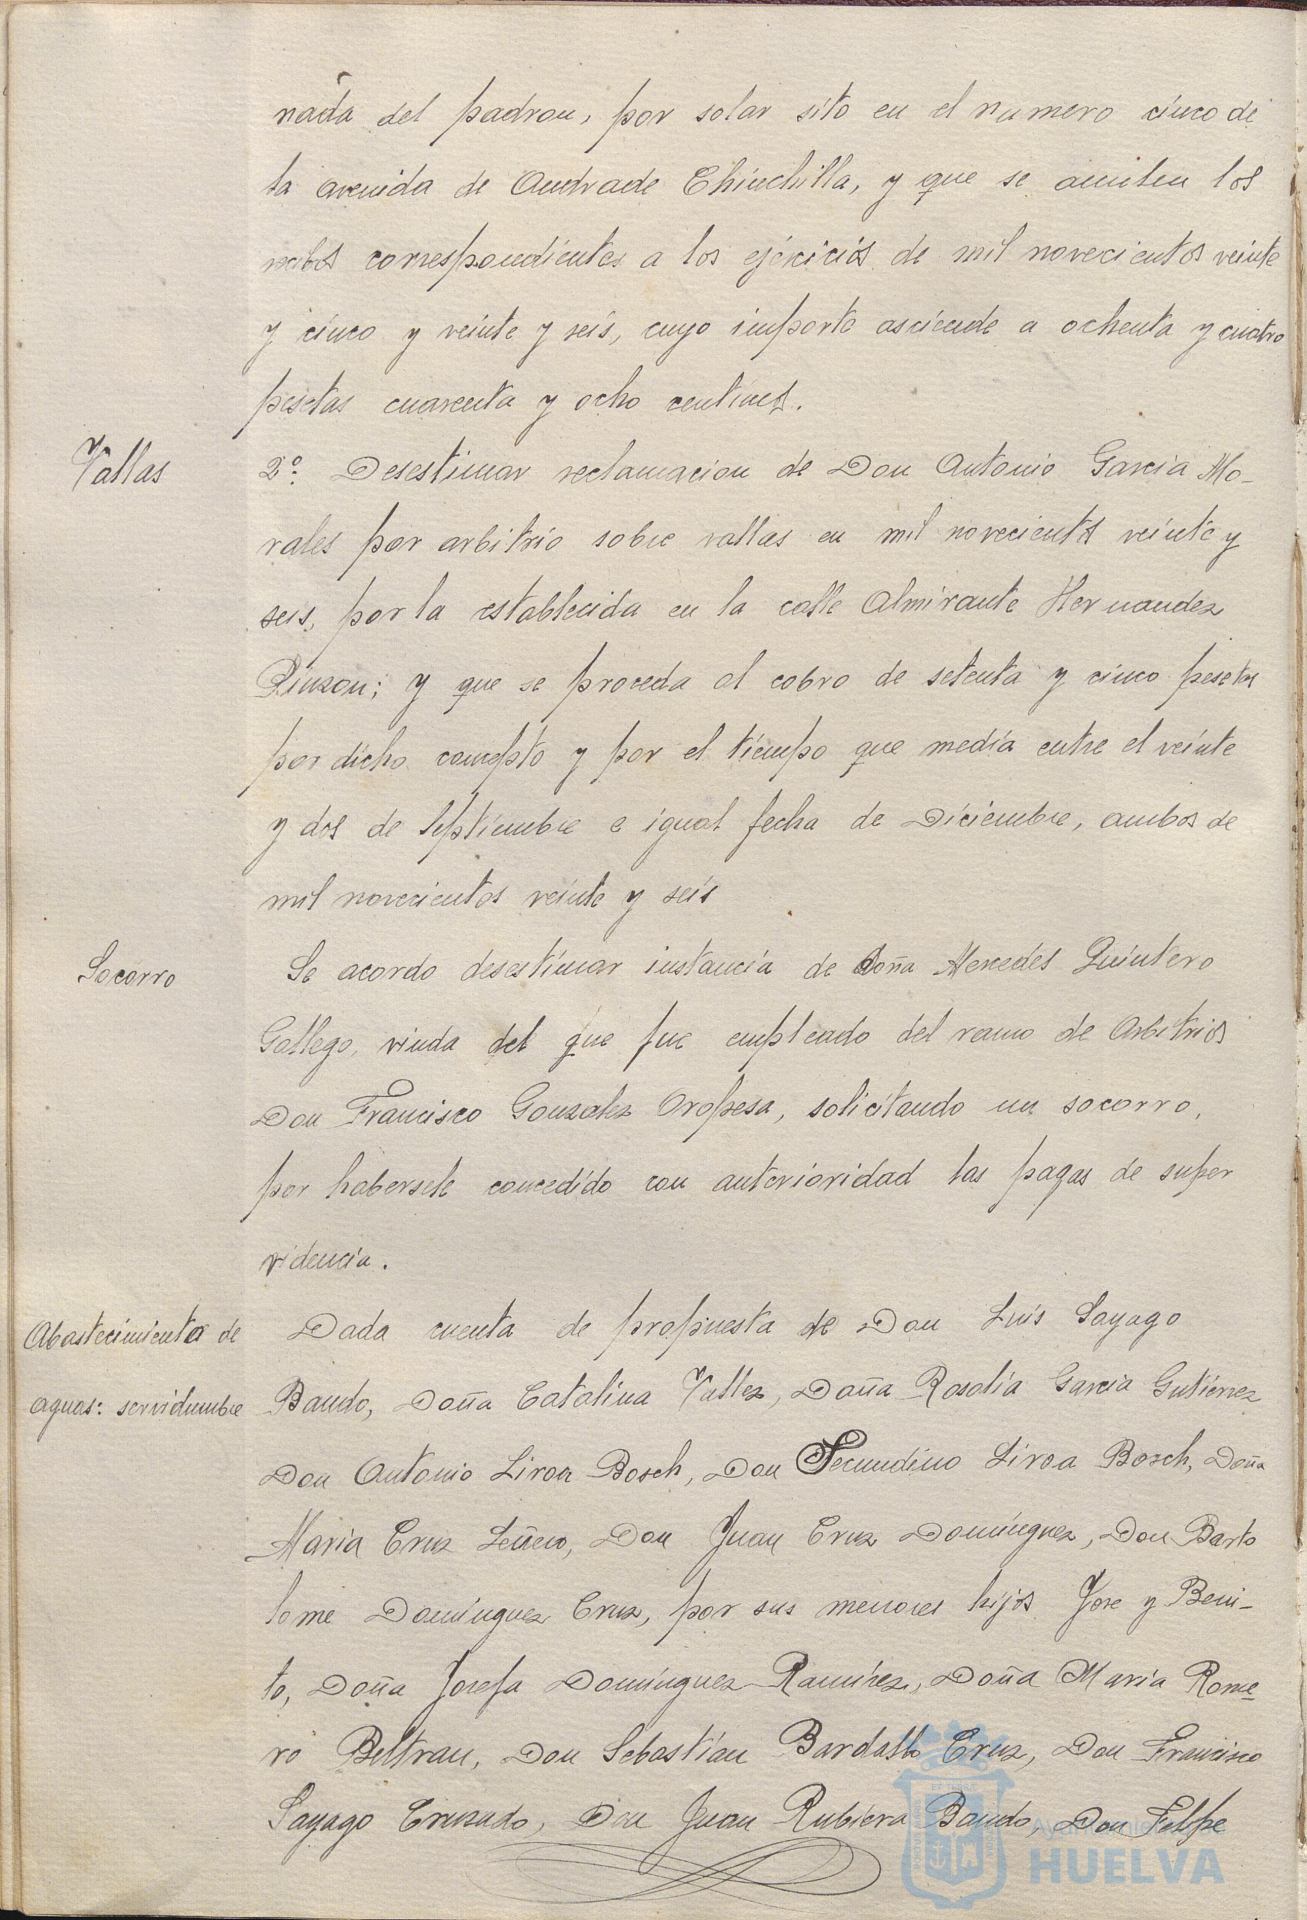 nada del padron, por solar sito en el numero cinco de
la avenida de Andrade Chinchilla, y que se anulen los
recibos correspondientes a los ejercicios de mil novecientos veinte
y cinco y veinte y seis, cuyo importe asciende a ochenta y cuatro
pesetas cuarenta y ocho centimos.
Vallas
2º. Desestimar reclamacion de Don Antonio Garcia Mo-
rales por arbitrio sobre vallas en mil novecientos veinte y
seis, por la establecida en la calle Almirante Hernandez
Pinzon; y que se proceda al cobro de setenta y cinco pesetas
por dicho concepto y por el tiempo que media entre el veinte
y dos de Septiembre e igual fecha de Diciembre, ambos de
mil novecientos veinte y seis
Socorro
Se acordo desestimar instancia de Doña Mercedes Quintero
Gallego, viuda del que fue empleado del ramo de Arbitrios
Don Francisco Gonzalez Oropesa, solicitando un socorro,
por habersele concedido con anterioridad las pagas de super
videncia.
Abastecimiento de
aguas: servidumbre
Dada cuenta de propuesta de Don Luis Sayago
Bando, Doña Catalina Vallez, Doña Rosalia Garcia Gutierrez
Don Antonio Liroa Bosch, Don Secundino Liroa Bosch, Doña
Maria Cruz Leñero, Don Juan Cruz Dominguez, Don Barto
lome Dominguez Cruz, por sus menores hijos Jose y Beni-
to, Doña Josefa Dominguez Ramirez, Doña Maria Rome-
ro Beltran, Don Sebastian Bardallo Cruz, Don Francisco
Sayago Cruzado, Don Juan Rubiera Bando, Don Felipe
Ayuntamiento de
HUELVA